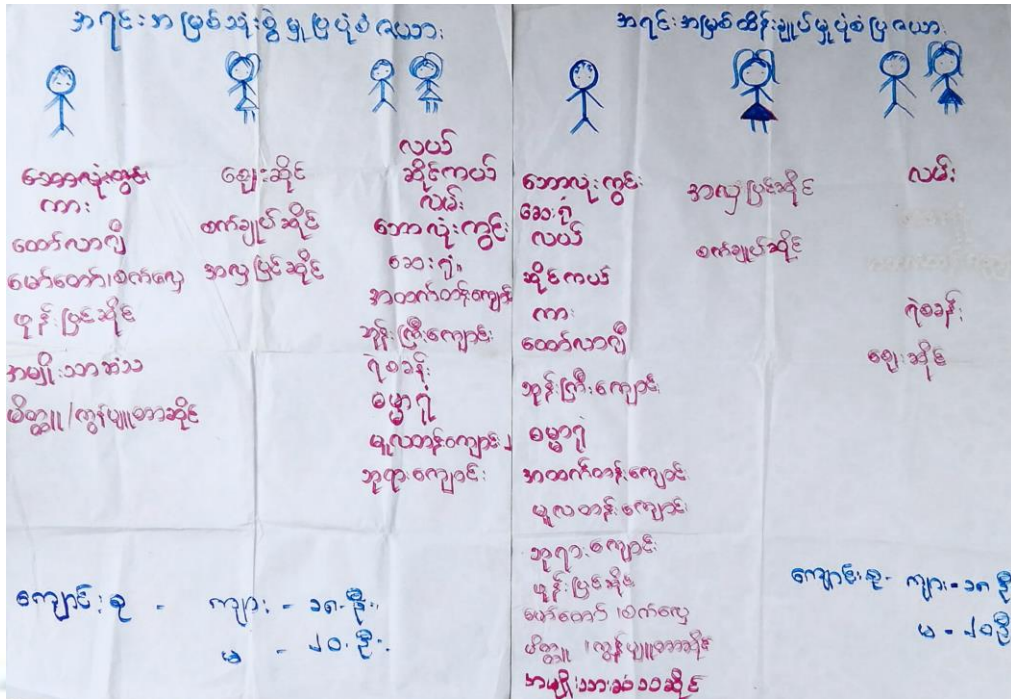 အရင်းအမြစ်သုံးစွဲမှုပြပုံစံဇယား
ဘောလုံးကွင်း
ကား
ထော်လာဂျီ
မော်တော်/စက်လှေ
ဖုန်းပြင်ဆိုင်
အမျိုးသားဆံသ
ဗီဒီယို/ကွန်ပျူတာဆိုင်
ဈေးဆိုင်
စက်ချုပ်ဆိုင်
အလှပြင်ဆိုင်
လယ်
ဆိုင်ကယ်
လမ်း
ဘောလုံးကွင်း
ဆေးရုံ
အထက်တန်းကျောင်း
ဘုန်းကြီးကျောင်း
ရဲစခန်း
ဓမ္မာရုံ
မူလတန်းကျောင်း
ဘုရားကျောင်း
ကျား - ၁၈ ဦး
မ - ၂၀ ဦး
အရင်းအမြစ်ထိန်းချုပ်မှုပုံစံပြဇယား
ဘောလုံးကွင်း
ဆေးရုံ
လယ်
ဆိုင်ကယ်
ကား
ထော်လာဂျီ
ဘုန်းကြီးကျောင်း
ဓမ္မာရုံ
အထက်တန်းကျောင်း
မူလတန်းကျောင်း
ဘုရားကျောင်း
ဖုန်းပြင်ဆိုင်
မော်တော်/စက်လှေ
ဗီဒီယို/ကွန်ပျူတာဆိုင်
အမျိုးသားဆံသဆိုင်
အလှပြင်ဆိုင်
စက်ချုပ်ဆိုင်
လမ်း
ရဲစခန်း
ဈေးဆိုင်
ကျား - ၁၈ ဦး
မ - ၂၀ ဦး